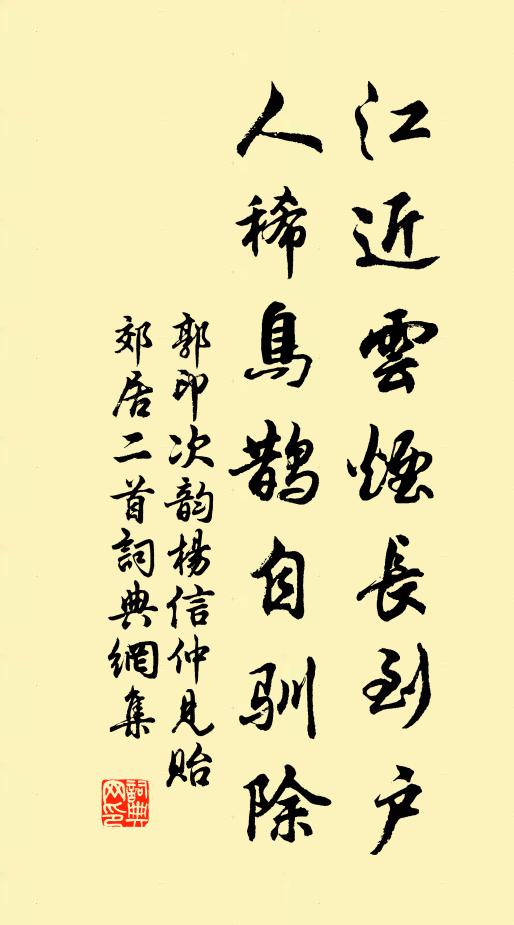 江近雲煙長到户
人稀鳥鵲自驯除
郭印次韵楊信仲見貽
郊居二首詞典網集
詞典
网印